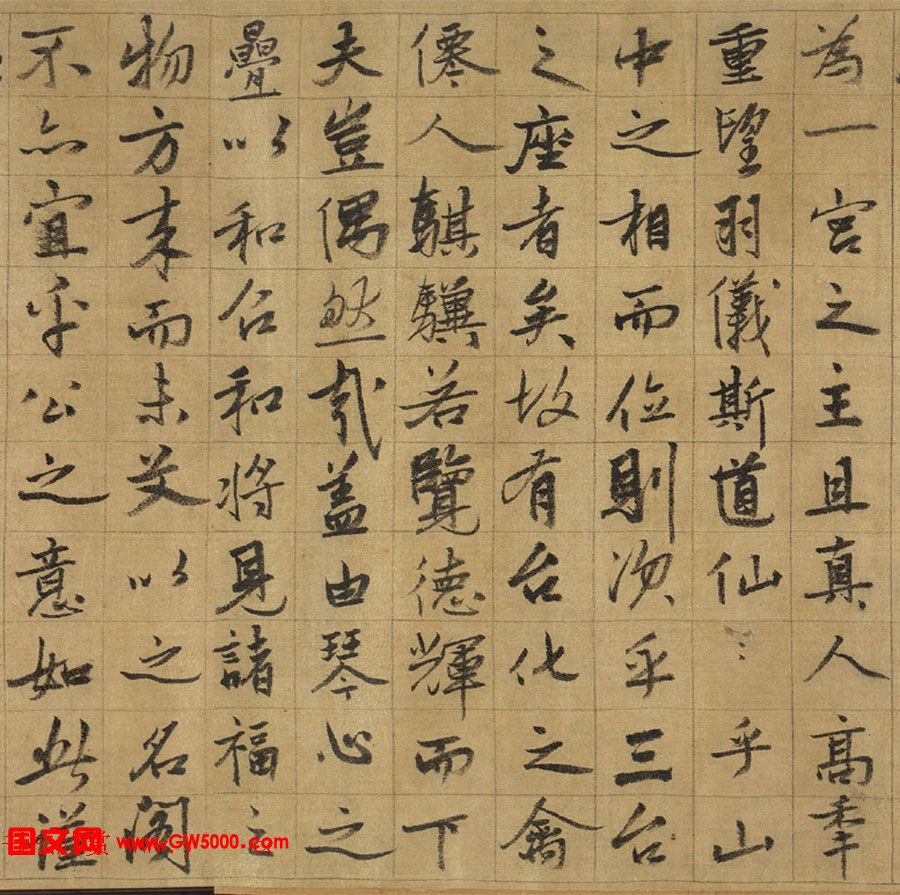 為一宮之主且真人高年
重望羽儀斯道仙〻乎山
中之相而位則次乎三台
之座者矣故有台化之禽
僊人騏驥若覽德輝而下
夫豈偶然哉盖由琴心之
疊以和合和將見諸福之
物方来而未艾以之名閣
不亦宜乎公之意如此謹
国文网 www.GW5000.com